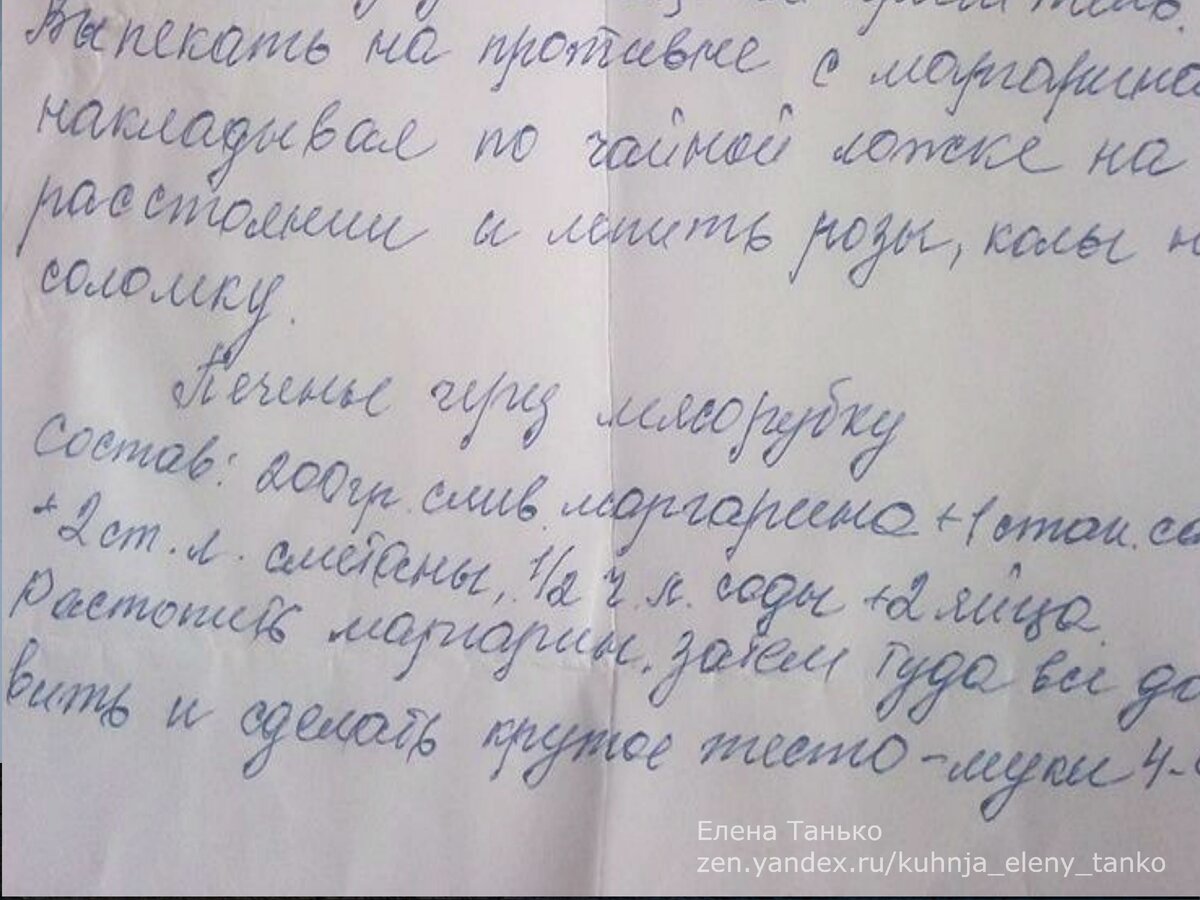 Выпекать на противне с маргарино
накладывая по чайной ложке на
расстоянии и лепить розы, калы н
соломку.
Печенье через мясорубку
Состав: 200гр. слив. маргарина + 1 стак. са
+ 2 ст. л. сметаны, 1/2 ч. л. соды + 2 яйца.
Растопить маргарин, затем туда всё до
вить и сделать крутое тесто - муки 4-
Елена Танько
zen.yandex.ru/kuhnja_eleny_tanko